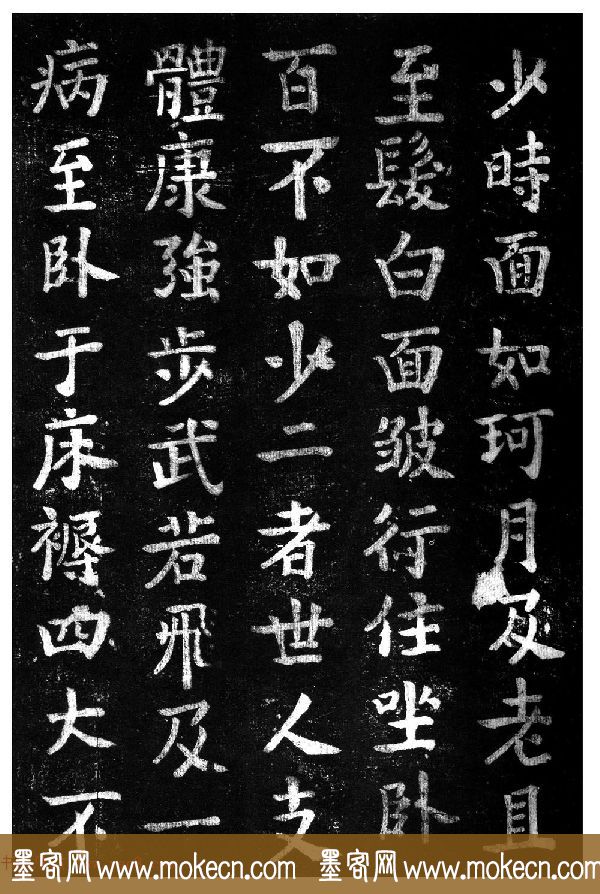 少時面如珂月及老且
至髮白面皺行住坐卧
百不如少二者世人支
體康強步武若飛及一
病至卧于床褥四大不
墨客网 www.mokecn.com 墨客网 www.mokecn.com